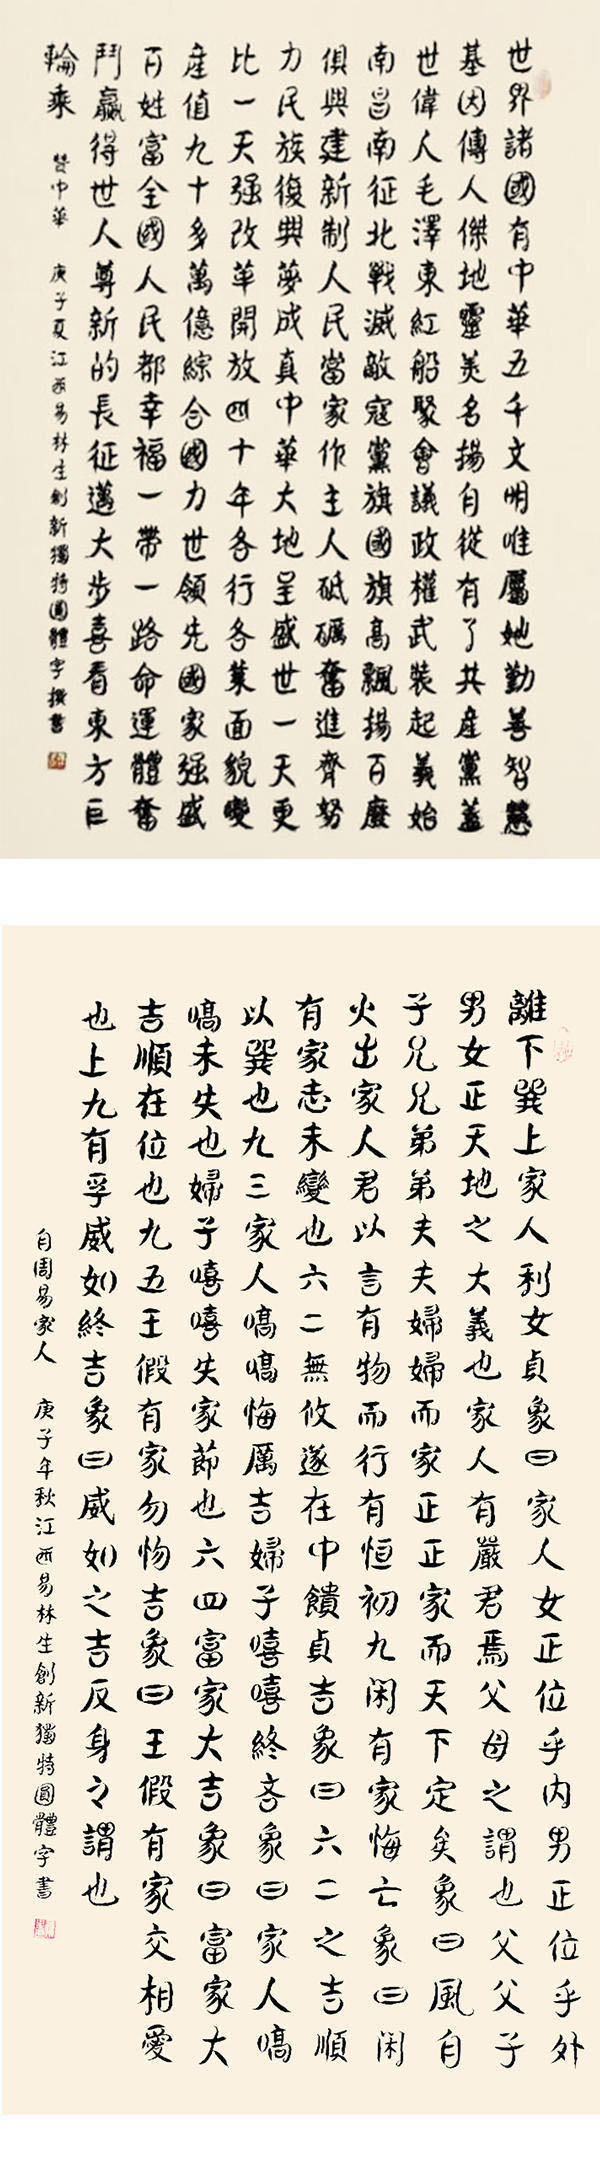 世界諸國有中華五千文明唯屬她勤善智慧
基因傳人傑地靈美名揚自從有了共產黨蓋
世偉人毛澤東紅船聚會議政權武裝起義始
南昌南征北戰滅敵寇黨旗國旗高飄揚百廢
俱興建新制人民當家作主人砥礪奮進齊努
力民族復興夢成真中華大地呈盛世一天更
比一天强改革開放四十年各行各業面貌變
產值九十多萬億綜合國力世領先國家强盛
百姓富全國人民都幸福一帶一路命運體奮
鬥贏得世人尊新的長征邁大步喜看東方巨
輪乘 贊中華 庚子夏江西易林生創新獨特圓體字撰書
離下巽上家人利女貞象曰家人女正位乎内男正位乎外
男女正天地之大義也家人有嚴君焉父母之謂也父父子
子兄兄弟弟夫夫婦婦而家正正家而天下定矣象曰風自
火出家人君以言有物而行有恒初九閑有家悔亡象曰閑
有家志未變也六二無攸遂在中饋貞吉象曰六二之吉順
以巽也九三家人嗃嗃悔厲吉婦子嘻嘻終吝象曰家人嗃
嗃未失也婦子嘻嘻失家節也六四富家大吉象曰富家大
吉順在位也九五王假有家勿恤吉象曰王假有家交相愛
也上九有孚威如終吉象曰威如之吉反身之謂也
自周易家人 庚子年秋江西易林生創新獨特圓體字書